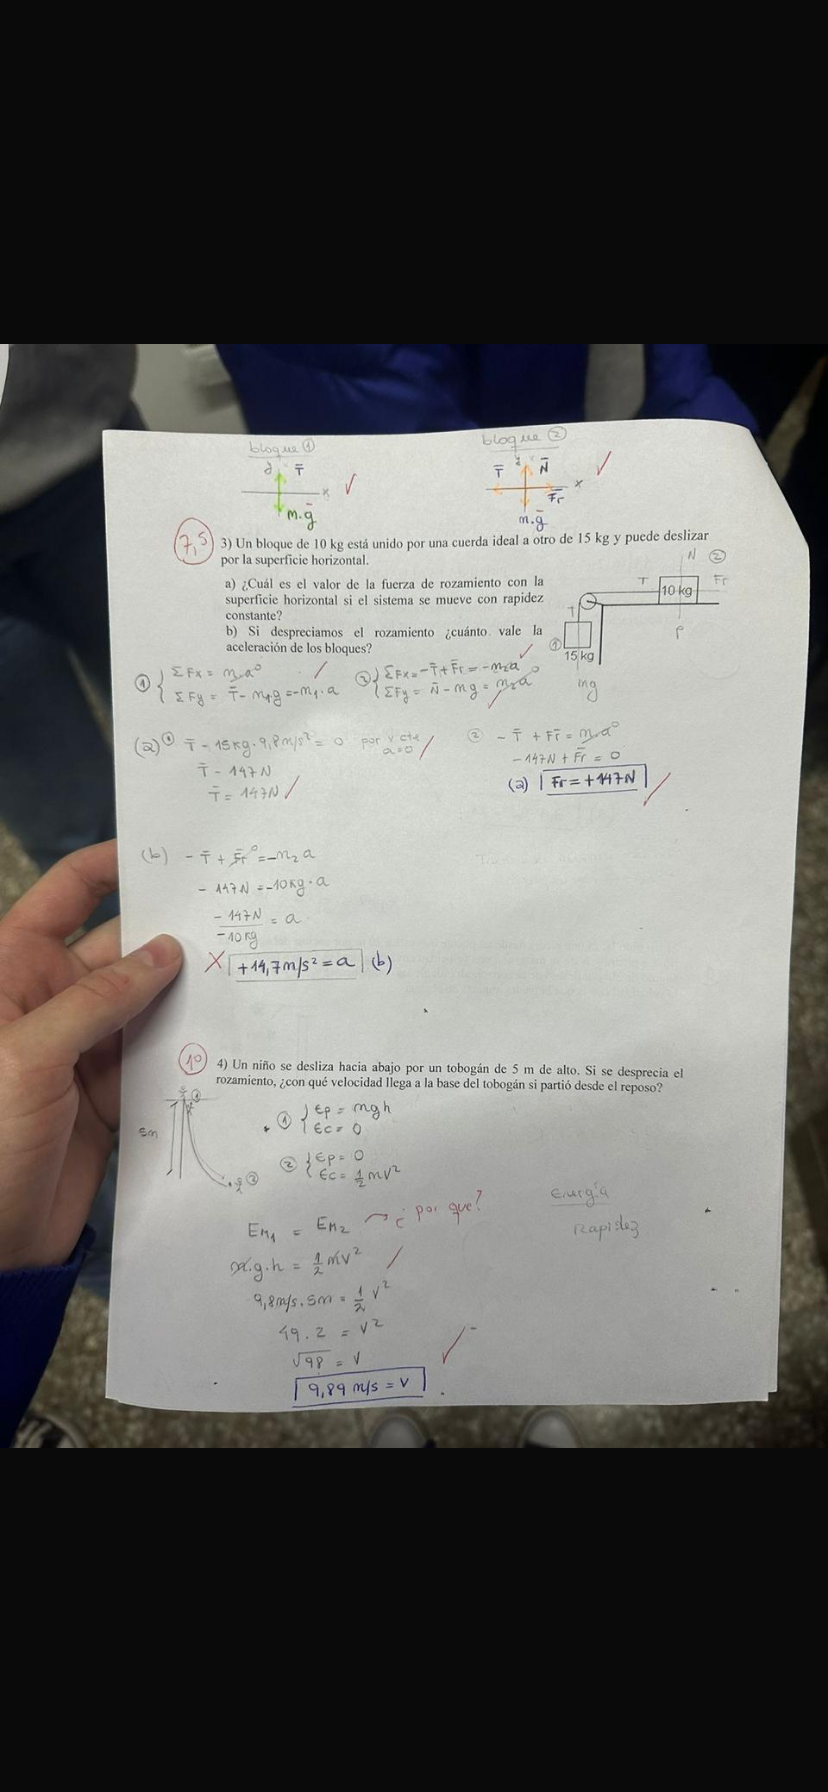 bloque ①
bloque ②
y T̄
x
m.ḡ
T̄ y N̄
x
Fr
m.ḡ
7,5
3) Un bloque de 10 kg está unido por una cuerda ideal a otro de 15 kg y puede deslizar
por la superficie horizontal.
a) ¿Cuál es el valor de la fuerza de rozamiento con la
superficie horizontal si el sistema se mueve con rapidez
constante?
b) Si despreciamos el rozamiento ¿cuánto vale la
aceleración de los bloques?
N ②
T Fr
10 kg
T
P
① 15 kg
mg
① { ΣFx = m.a⁰
ΣFy = T̄ - m₁.g = -m₁.a
② { ΣFx = -T̄ + F̄r = -m₂a
ΣFy = N̄ - mg = m₂a⁰
(a) ① T̄ - 15kg.9,8m/s² = 0 por v cte a=0
T̄ - 147N
T̄ = 147N
② -T̄ + Fr̄ = m.a⁰
-147N + F̄r = 0
(a) Fr = +147N
(b) -T̄ + F̄r⁰ = -m₂a
- 147N = -10kg.a
-147N / -10kg = a
X +14,7m/s² = a (b)
10
4) Un niño se desliza hacia abajo por un tobogán de 5 m de alto. Si se desprecia el
rozamiento, ¿con qué velocidad llega a la base del tobogán si partió desde el reposo?
①
5m
②
① { Ep = mgh
Ec = 0
② { Ep = 0
Ec = 1/2 mv²
Energía
Rapidez
EM₁ = EM₂ → ¿por que?
m.g.h = 1/2 mv²
9,8m/s.5m = 1/2 v²
49.2 = v²
√98 = v
9,89 m/s = v